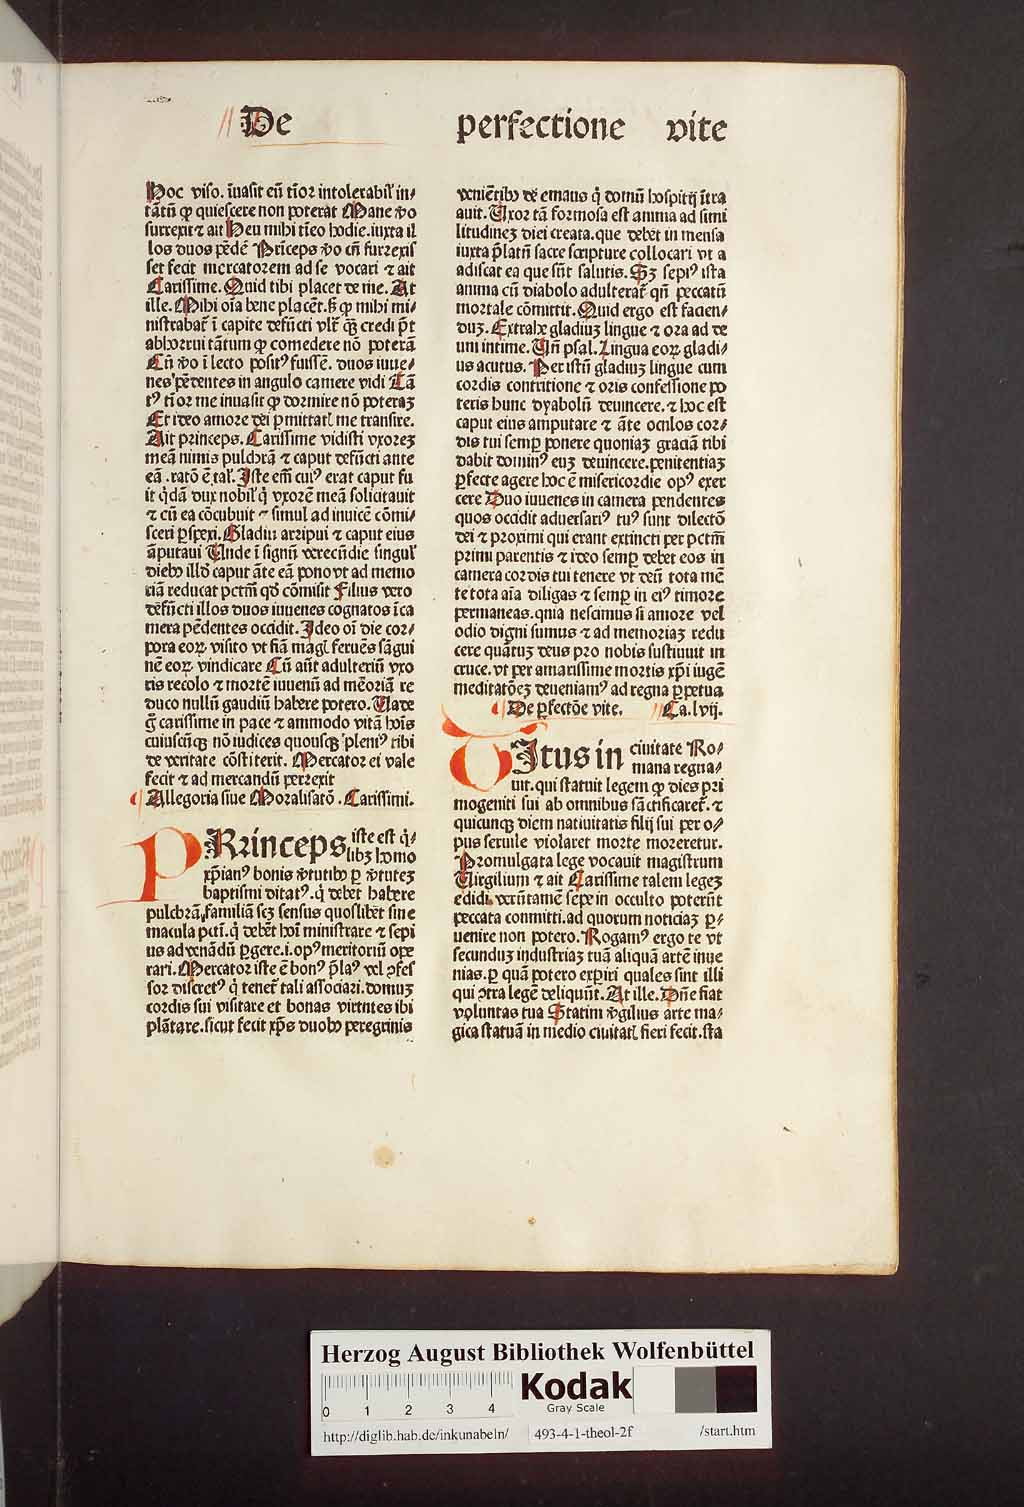 De perfectione vite
Hoc viso. īuasit eū tīor intolerabiľ in⸗
tātū ꝙ quiescere non poterat Mane v̄o
surrexit ⁊ ait Heu mihi tīeo hodie. iuxta il
los duos pēdē Prīnceps v̄o cū surrexis
set fecit mercatorem ad se vocari ⁊ ait
Carissime. Quid tibi placet de me. At
ille. Mihi oīa bene placēt. ꝙ mihi mi⸗
nistrabať ī capite defūcti credi
abhorrui tātum ꝙ comedere nō poterā
Cū v̄o ī lecto positꝰ fuissē. duos iuue⸗
nes pēdentes in angulo camere vidi Tā
tꝰ tīor me inuasit ꝙ dormire nō poteraꝫ
Et ideo amore dei ꝑmittatl me transire.
Ait princeps. Carissime vidisti vxoreꝫ
meā nimis pulchrā ⁊ caput defūcti ante
eā . ratō ē taľ. Iste em̄ cuiꝰ erat caput fu
it q̄dā dux nobiľ q̄ vxorē meā solicitauit
⁊ cū ea cōcubuit ⁊ simul ad inuicē cōmi⸗
sceri ꝑspexi. Gladiū arripui ⁊ caput eius
āputaui Unde ī signū verecūdie singuľ
dieb illđ caput āte eā pono vt ad memo
riā reducat pctm̄ qđ cōmisit Filius vero
defūcti illos duos iuuenes cognatos ī ca
mera pēdentes occidit. Ideo oī die cor⸗
pora eoꝝ visito vt fiā magl feruēs sāgui
nē eoꝝ vindicare Cū aūt adulteriū vxo
ris recolo ⁊ mortē iuuenū ad mēoriā re
duco nullū gaudiū habere potero. Uade
ḡ carissime in pace ⁊ ammodo vitā hoīs
cuiuscūqꝫ nō iudices quousqꝫ pleniꝰ tibi
de veritate cōstiterit. Mercator ei vale
fecit ⁊ ad mercandū perrexit
Allegoria siue Moralisatō. Carissimi.
PRrinceps iste est q̄⸗
libꝫ homo
xp̄ianꝰ bonis v̄tutib ꝑ v̄tuteꝫ
baptismi ditatꝰ. q̄ debet habere
pulchrā familiā scꝫ sensus quoslibet sine
macula pctī. q̄ debēt hoī ministrare ⁊ sepi
us ad venādū ꝑgere. i. opꝰ meritoriū ope
rari. Mercator iste ē bonꝰ p̄latꝰ vel ꝯfes
sor discretꝰ q̄ teneť tali associari. domuꝫ
cordis sui visitare et bonas virtutes ibi
plātare. sicut fecit xp̄s duob peregrinis
veniētib de emaus q̄ domū hospitij ītra
auit. Uxor tā formosa est anima ad simi
litudineꝫ diei creata. que debet in mensa
iuxta p̄latū sacre scripture collocari vt a
adiscat ea que sūt salutis. Sꝫ sepiꝰ ista
anima cū diabolo adulterať qn̄ peccatū
mortale cōmittit. Quid ergo est facien⸗
duꝫ. Extrahe gladiuꝫ lingue ⁊ ora ad de
um intime. Un̄ psal. Lingua eoꝝ gladi⸗
us acutus. Per istū gladiuꝫ lingue cum
cordis contritione ⁊ oris confessione po
teris hunc dyabolū deuincere. ⁊ hoc est
caput eius amputare ⁊ āte oculos cor⸗
dis tui semꝑ ponere quoniaꝫ graciā tibi
dabit dominꝰ euꝫ deuincere. penitentiaꝫ
ꝑfecte agere hoc ē misericordie opꝰ exer
cere Duo iuuenes in camera pendentes
quos occidit aduersariꝰ tuꝰ sunt dilectō
dei ⁊ proximi qui erant extincti per pctm̄
primi parentis ⁊ ideo semꝑ debet eos in
camera cordis tui tenere vt deū tota mē
te tota aīa diligas ⁊ semꝑ in eiꝰ timore
permaneas. quia nescimus si amore vel
odio digni sumus ⁊ ad memoriaꝫ redu
cere quātuꝫ deus pro nobis sustinuit in
cruce. vt per amarissime mortis xp̄i iugē
meditatōeꝫ deueniamꝰ ad regna ꝑpetua
De ꝑfectōe vite. Ca. lvij.
TItus in ciuitate Ro⸗
mana regna⸗
uit. qui statuit legem ꝙ dies pri
mogeniti sui ab omnibus sāctificareť. ⁊
quicunqꝫ diem natiuitatis filij sui per o⸗
pus seruile violaret morte moreretur.
Promulgata lege vocauit magistrum
Uirgilium ⁊ ait Carissime talem legeꝫ
edidi. verūtamē sepe in occulto poterūt
peccata conmitti. ad quorum noticiaꝫ ꝑ⸗
uenire non potero. Rogamꝰ ergo te vt
secunduꝫ industriaꝫ tuā aliquā artē inue
nias. ꝑ quā potero exꝑiri quales sint illi
qui ꝯtra legē deliquūt. At ille. Dn̄e fiat
voluntas tua Statim v̄gilius arte ma⸗
gica statuā in medio ciuitatl fieri fecit. sta
Herzog August Bibliothek Wolfenbüttel
0 1 2 3 4
Kodak
Gray Scale
http://diglib.hab.de/inkunabeln/ 493-4-1-theol-2f /start.htm